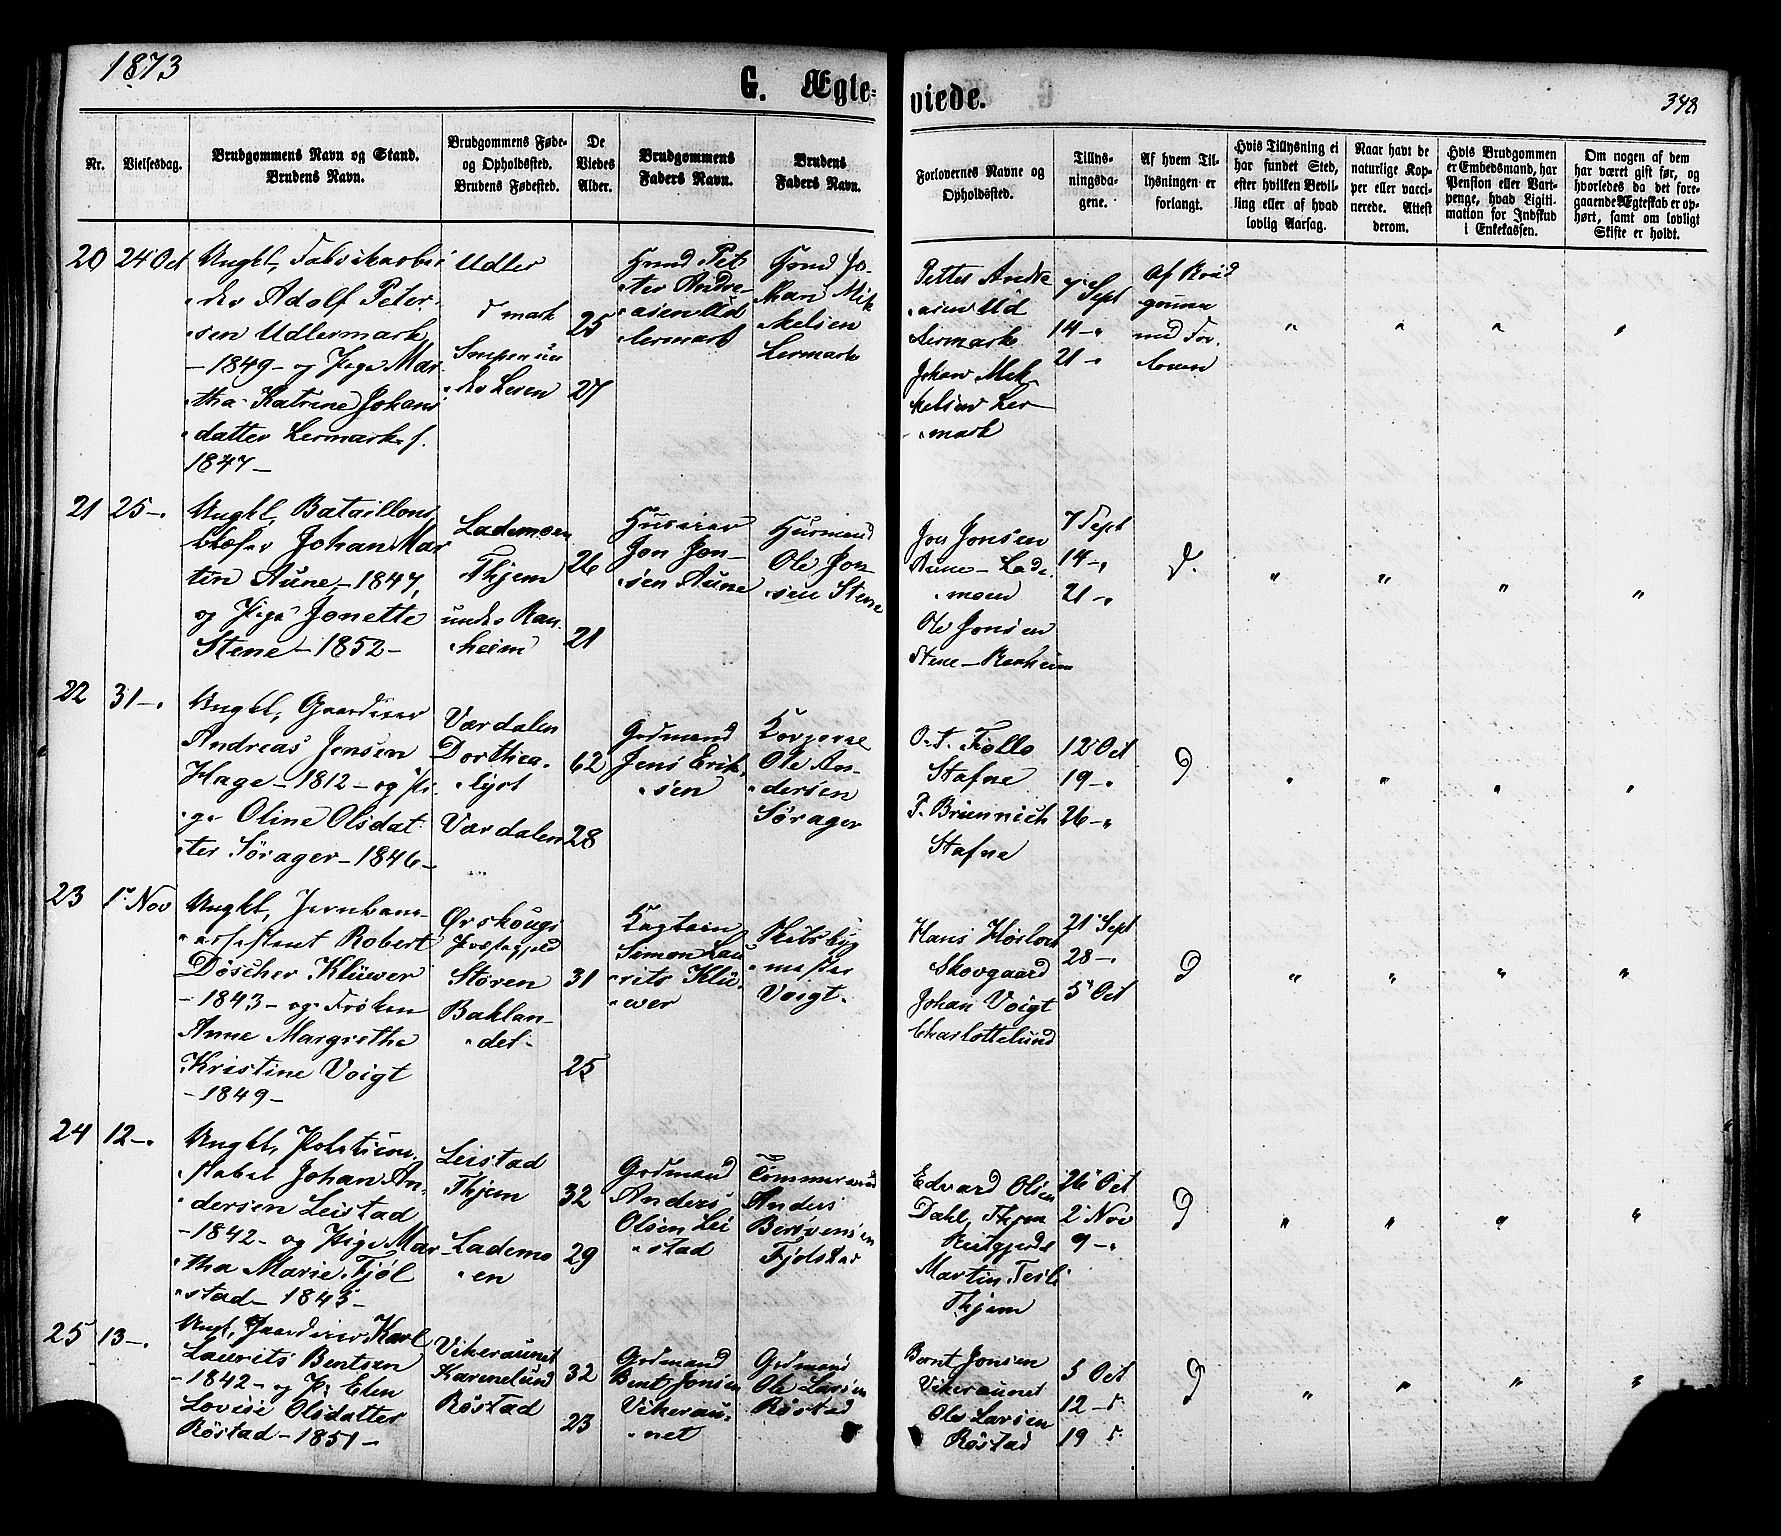 1873
G. Ægte-
viede.
348
Nr.
Vielsesdag.
Brudgommens Navn og Stand.
Brudens Navn.
Brudgommens Føde-
og Opholdsted.
Brudens Fødested.
De
Viedes
Alder.
Brudgommens
Faders Navn.
Brudens
Faders Navn.
Forlovernes Navne og
Opholdsted.
Tillys-
ningsda-
gene.
Af hvem Til-
lysningen er
forlangt.
Hvis Tillysning ei
har fundet Sted,
efter hvilken Bevil-
ling eller af hvad
lovlig Aarsag.
Naar havt de
naturlige Kop-
per eller vacci-
nerede. Attest
derom.
Hvis Brudgommen
er Embedsmand, har
Pension eller Vart-
penge, hvad Ligiti-
mation for Indskud
i Enkekassen.
Om nogen af dem
har været gift før, og
hvorledes da det fore-
gaaende Ægteskab er op-
hørt, samt om lovligt
Skifte er holdt.
20
24 Oct
Ungkl, Fabrikarbei
der Adolf Peter-
sen Udlermark
- 1849 - og Pige Mar
tha Katrine Johans
datter Lermark f.
1847 -
Udler
mark
Leren
25
27
Husmd Pet
ter Andre-
asen Ud
lermark
Husmd Jo-
han Mik
kelsen
Lermark
Petter Andre
asen Ud
lermark
Johan Mik
kelsen Ler
mark
7 Sept
14 - "
21 - "
Af Brud
gommen
med For
loveren
21
25 -
Ungkl, Bataillons
blæser Johan Mar
tin Aune - 1847,
og Pige Jonette
Stene - 1852 -
Lademoen
Thjem
under Ran
heim
26
21
Huseier
Jon Jon-
sen Aune
Husmand
Ole Jon-
sen Stene
Jon Jonsen
Aune - Lade
moen
Ole Jonsen
Stene - Ranheim
7 Sept
14 - "
21 - "
d.
22
31 -
Ungkl, Gaardeier
Andreas Jensen
Hage - 1812 - og Pi
ge Oline Olsdat
ter Sørager - 1846 -
Værdalen
Dorthea-
lyst
Værdalen
62
28
Grdmand
Jens Erik
sen
Ole An-
dersen
Sørager
O. T. Follo
Stafne
P. Brünnich
Stafne
12 Oct
19 - "
26 - "
d
23
1 Nov
Ungkl, Jernbane-
assistent Robert
Döscher Klüwer
- 1843 - og Frøken
Anne Margrethe
Kristine Voigt
- 1849 -
Ørskougs
Præstegjeld
Støren
Baklan-
det -
31
25
Kaptein
Simon Lau
rits Klü-
wer
Skibsbyg
mester
Voigt.
Hans
Skovgaard
Johan Voigt
Charlottelund
21 Sept
28 - "
5 Oct
d
24
12 -
Ungkl, Politicon
stabel Johan An
dersen Leistad
- 1842 - og Pige Mar
tha Marie Fjøl
stad - 1845 -
Leistad
Thjem
Lademo
en
32
29
Grdmand
Anders
Olsen Lei
stad
Tømmermand
Anders
Fjølstad
Edvard Olsen
Dahl, Thjem
Martin Tesli
Thjem
26 Oct
2 Nov
9 - "
d
25
13 -
Ungk, Gaardeier Karl
Laurits Bentsen
- 1842 - og P. Elen
Lovise Olsdatter
Røstad - 1851 -
Vikeraunet
Karenelund
Røstad
32
23
Grdmand
Bent Jonsen
Vikerau-
net
Grdmand
Ole Larsen
Røstad
Bernt Jonsen
Vikeraunet
Ole Larsen
Røstad
5 Oct
12 -
19
d